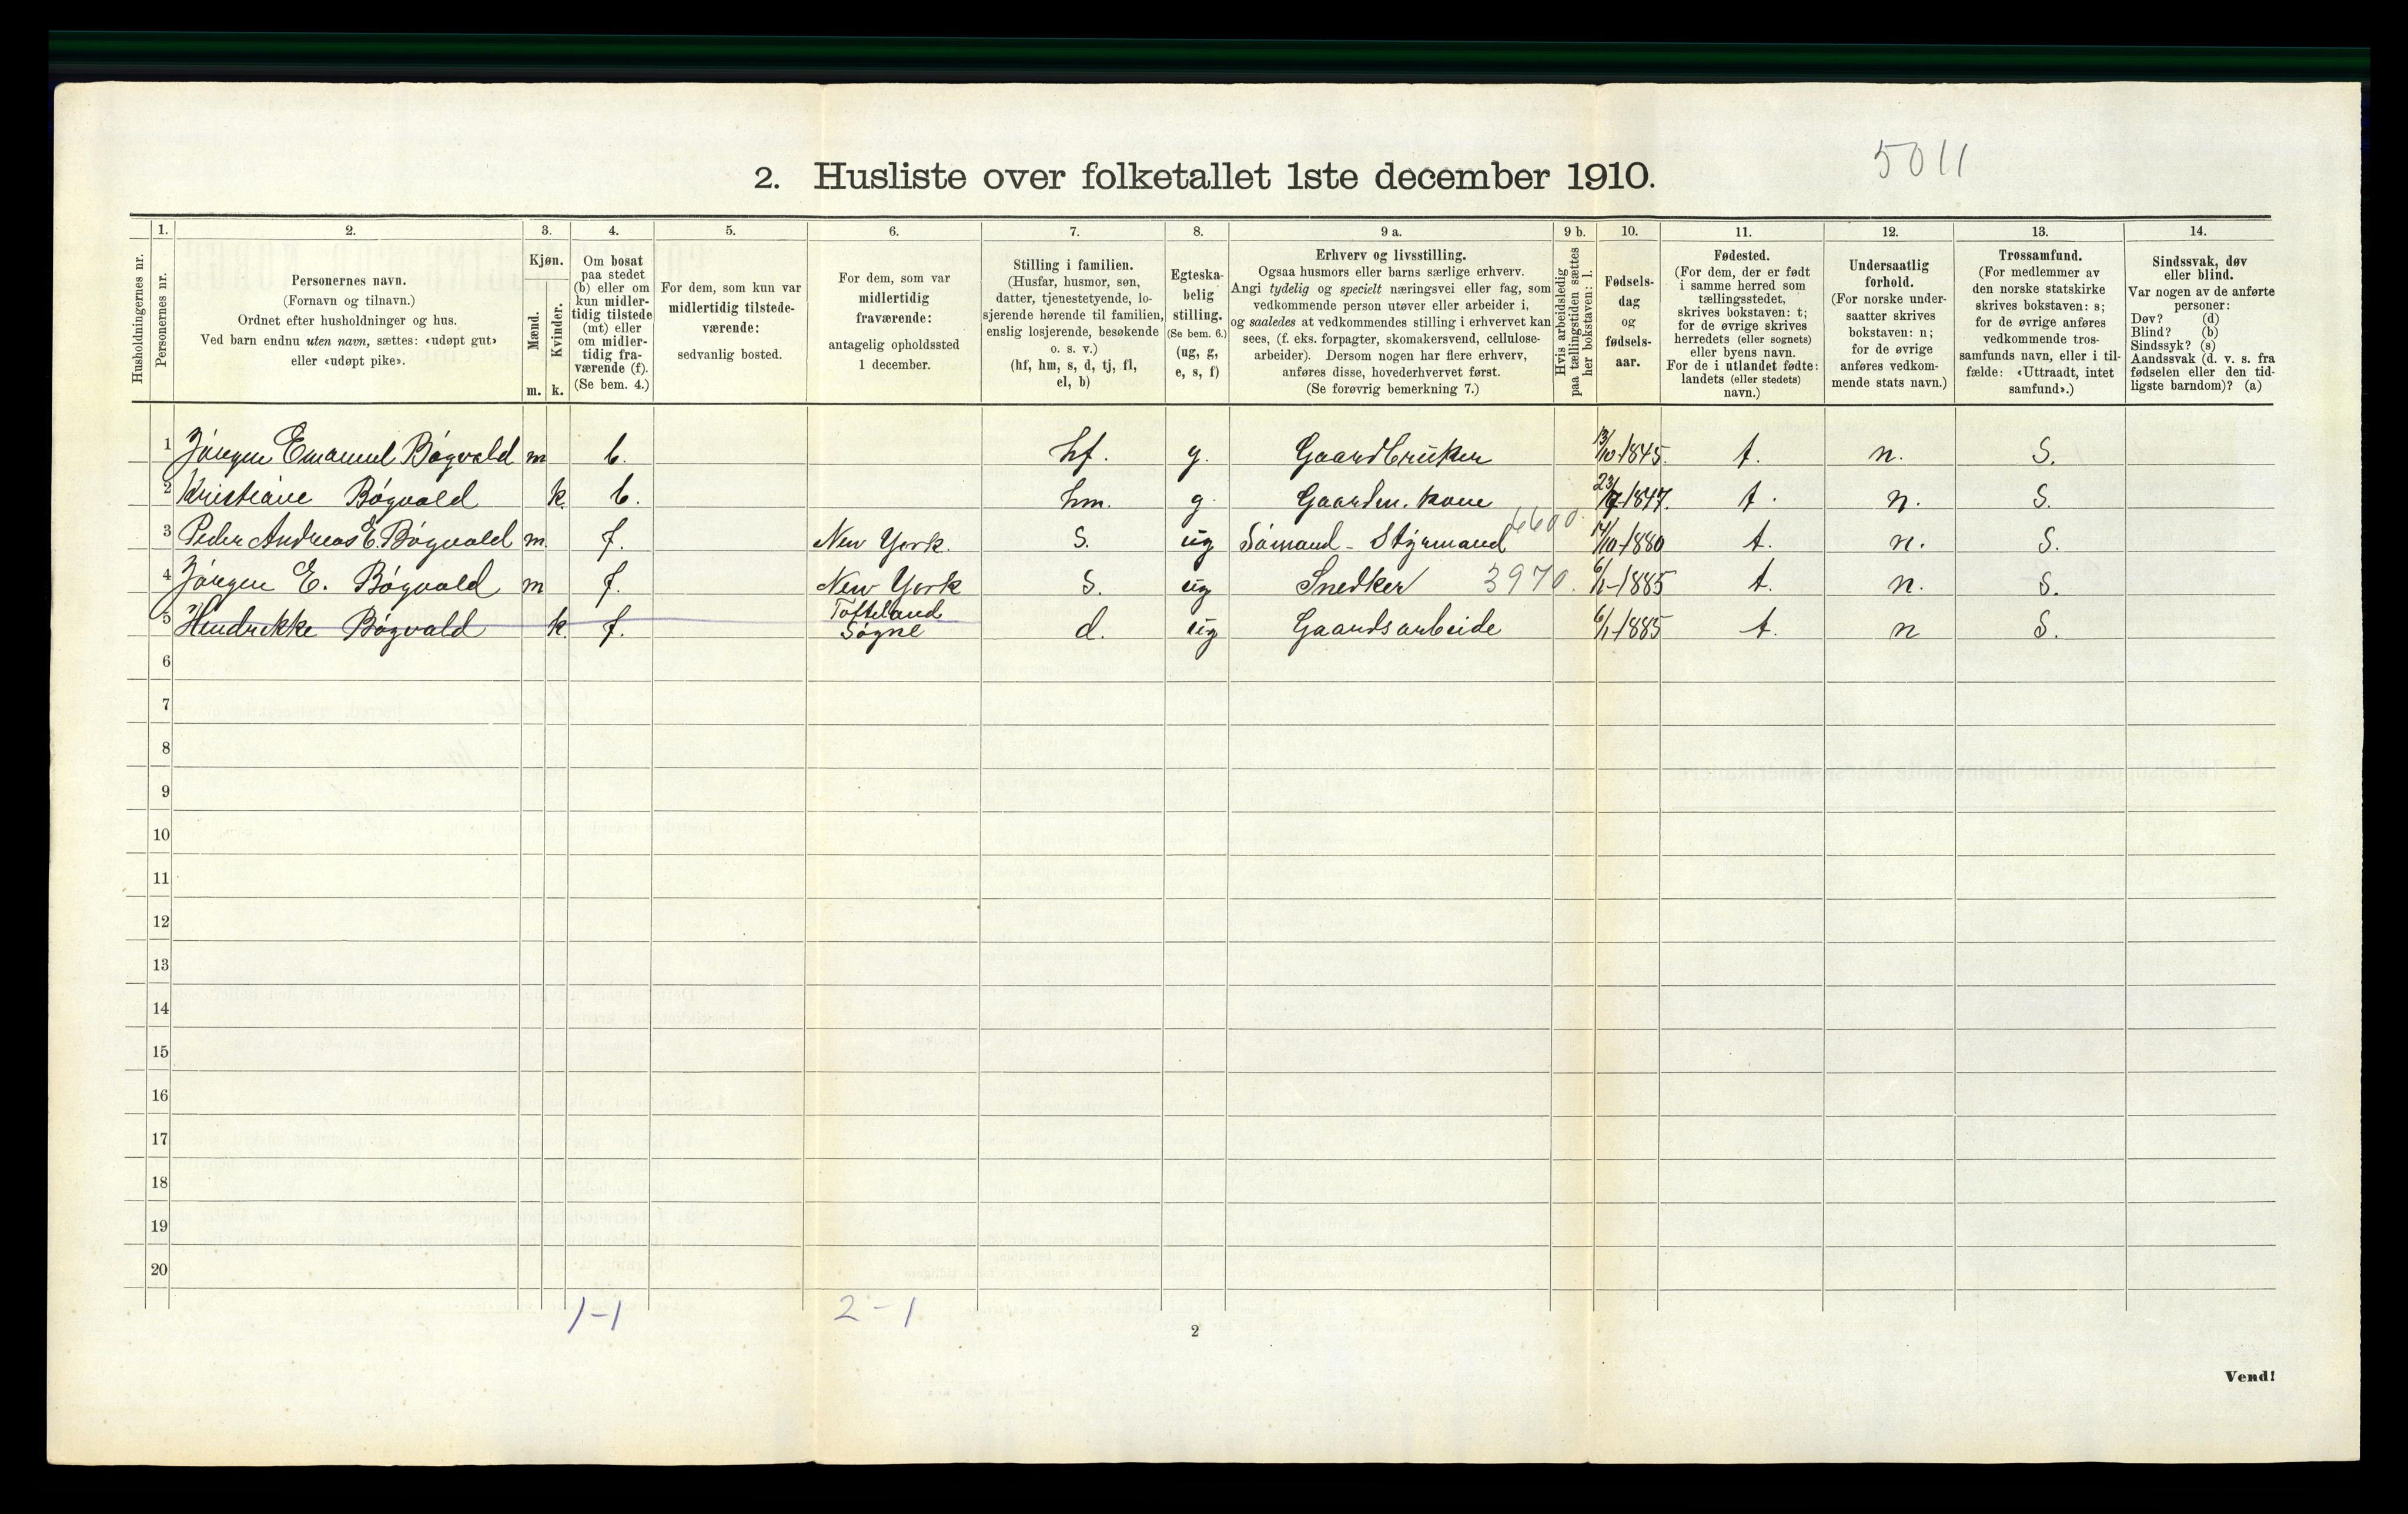 2. Husliste over folketallet 1ste december 1910.
5011
1. 2. 3. 4. 5. 6. 7. 8. 9 a. 9 b. 10. 11. 12. 13. 14.
Husholdningernes nr.
Personernes nr.
Personernes navn.
(Fornavn og tilnavn.)
Ordnet efter husholdninger og hus.
Ved barn endnu uten navn, sættes: «udøpt gut»
eller «udøpt pike».
Kjøn.
Mænd.
Kvinder.
m. k.
Om bosat
paa stedet
(b) eller om
kun midler-
tidig tilstede
(mt) eller
om midler-
tidig fra-
værende (f).
(Se bem. 4.)
For dem, som kun var
midlertidig tilstede-
værende:
sedvanlig bosted.
For dem, som var
midlertidig
fraværende:
antagelig opholdssted
1 december.
Stilling i familien.
(Husfar, husmor, søn,
datter, tjenestetyende, lo-
sjerende hørende til familien,
enslig losjerende, besøkende
o. s. v.)
(hf, hm, s, d, tj, fl,
el, b)
Egteska-
belig
stilling.
(Se bem. 6.)
(ug, g,
e, s, f)
Erhverv og livsstilling.
Ogsaa husmors eller barns særlige erhverv.
Angi tydelig og specielt næringsvei eller fag, som
vedkommende person utøver eller arbeider i,
og saaledes at vedkommendes stilling i erhvervet kan
sees, (f. eks. forpagter, skomakersvend, cellulose-
arbeider). Dersom nogen har flere erhverv,
anføres disse, hovederhvervet først.
(Se forøvrig bemerkning 7.)
Hvis arbeidsledig
paa tællingstiden sættes
her bokstaven: l.
Fødsels-
dag
og
fødsels-
aar.
Fødested.
(For dem, der er født
i samme herred som
tællingsstedet,
skrives bokstaven: t;
for de øvrige skrives
herredets (eller sognets)
eller byens navn.
For de i utlandet fødte:
landets (eller stedets)
navn.)
Undersaatlig
forhold.
(For norske under-
saatter skrives
bokstaven: n;
for de øvrige
anføres vedkom-
mende stats navn.)
Trossamfund.
(For medlemmer av
den norske statskirke
skrives bokstaven: s;
for de øvrige anføres
vedkommende tros-
samfunds navn, eller i til-
fælde: «Uttraadt, intet
samfund».)
Sindssvak, døv
eller blind.
Var nogen av de anførte
personer:
Døv? (d)
Blind? (b)
Sindssyk? (s)
Aandssvak (d. v. s. fra
fødselen eller den tid-
ligste barndom)? (a)
1 Jörgen Emanuel Bögvald m b. hf. g. Gaardbruker 13/10-1845. t. n. S.
2 Kristiane Bögvald k. b. hm. g. Gaardm. kone 23/7-1847. t. n. S.
3 Peder Andreas E. Bögvald m. f. New York. S. ug Sömand - Styrmand 6600. 14/10-1880 t. n. S.
4 Jörgen E. Bögvald m f. New York S. ug Snedker 3970. 6/1-1885 t. n. S.
5 Hendrikke Bögvald k. f. Tofteland Sögne d. ug Gaardsarbeide 6/1-1885 t. n S.
6
7
8
9
10
11
12
13
14
15
16
17
18
19
20
1-1 2-1
2
Vend!